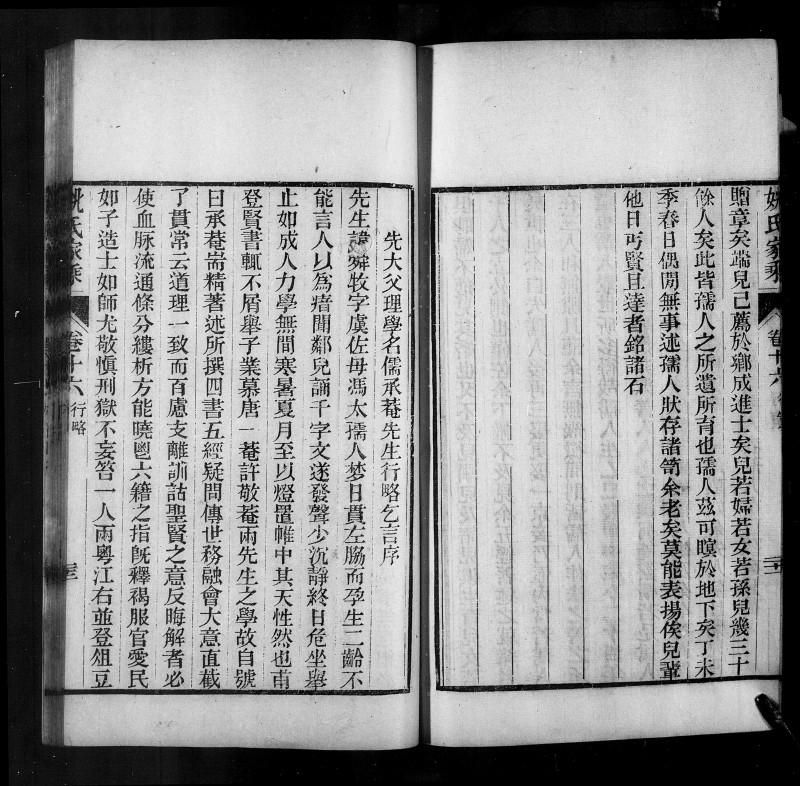 姚氏家乘
卷十六
贈章矣端兒已薦於鄉成進士矣兒若婦若女若孫兒幾三十
餘人矣此皆孺人之所遺所育也孺人茲可瞑於地下矣丁未
季春日偶閒無事述孺人狀存諸笥余老矣莫能表揚俟兒輩
他日丐賢且達者銘諸石
先大父理學名儒承菴先生行略乞言序
先生諱舜牧字虞佐母馮太孺人夢日貫左脇而孕生二齡不
能言人以為瘖聞鄰兒誦千字文遂發聲少沉靜終日危坐舉
止如成人力學無間寒暑夏月至以燈置帷中其天性然也甫
登賢書輒不屑舉子業慕唐一菴許敬菴兩先生之學故自號
曰承菴耑精著述所撰四書五經疑問傳世務融會大意直截
了貫常云道理一致而百慮支離訓詁聖賢之意反晦解者必
使血脉流通條分縷析方能曉鬯六籍之指旣釋褐服官愛民
如子造士如師尤敬慎刑獄不妄笞一人兩粵江右並登俎豆
姚氏家乘
卷十六
行略